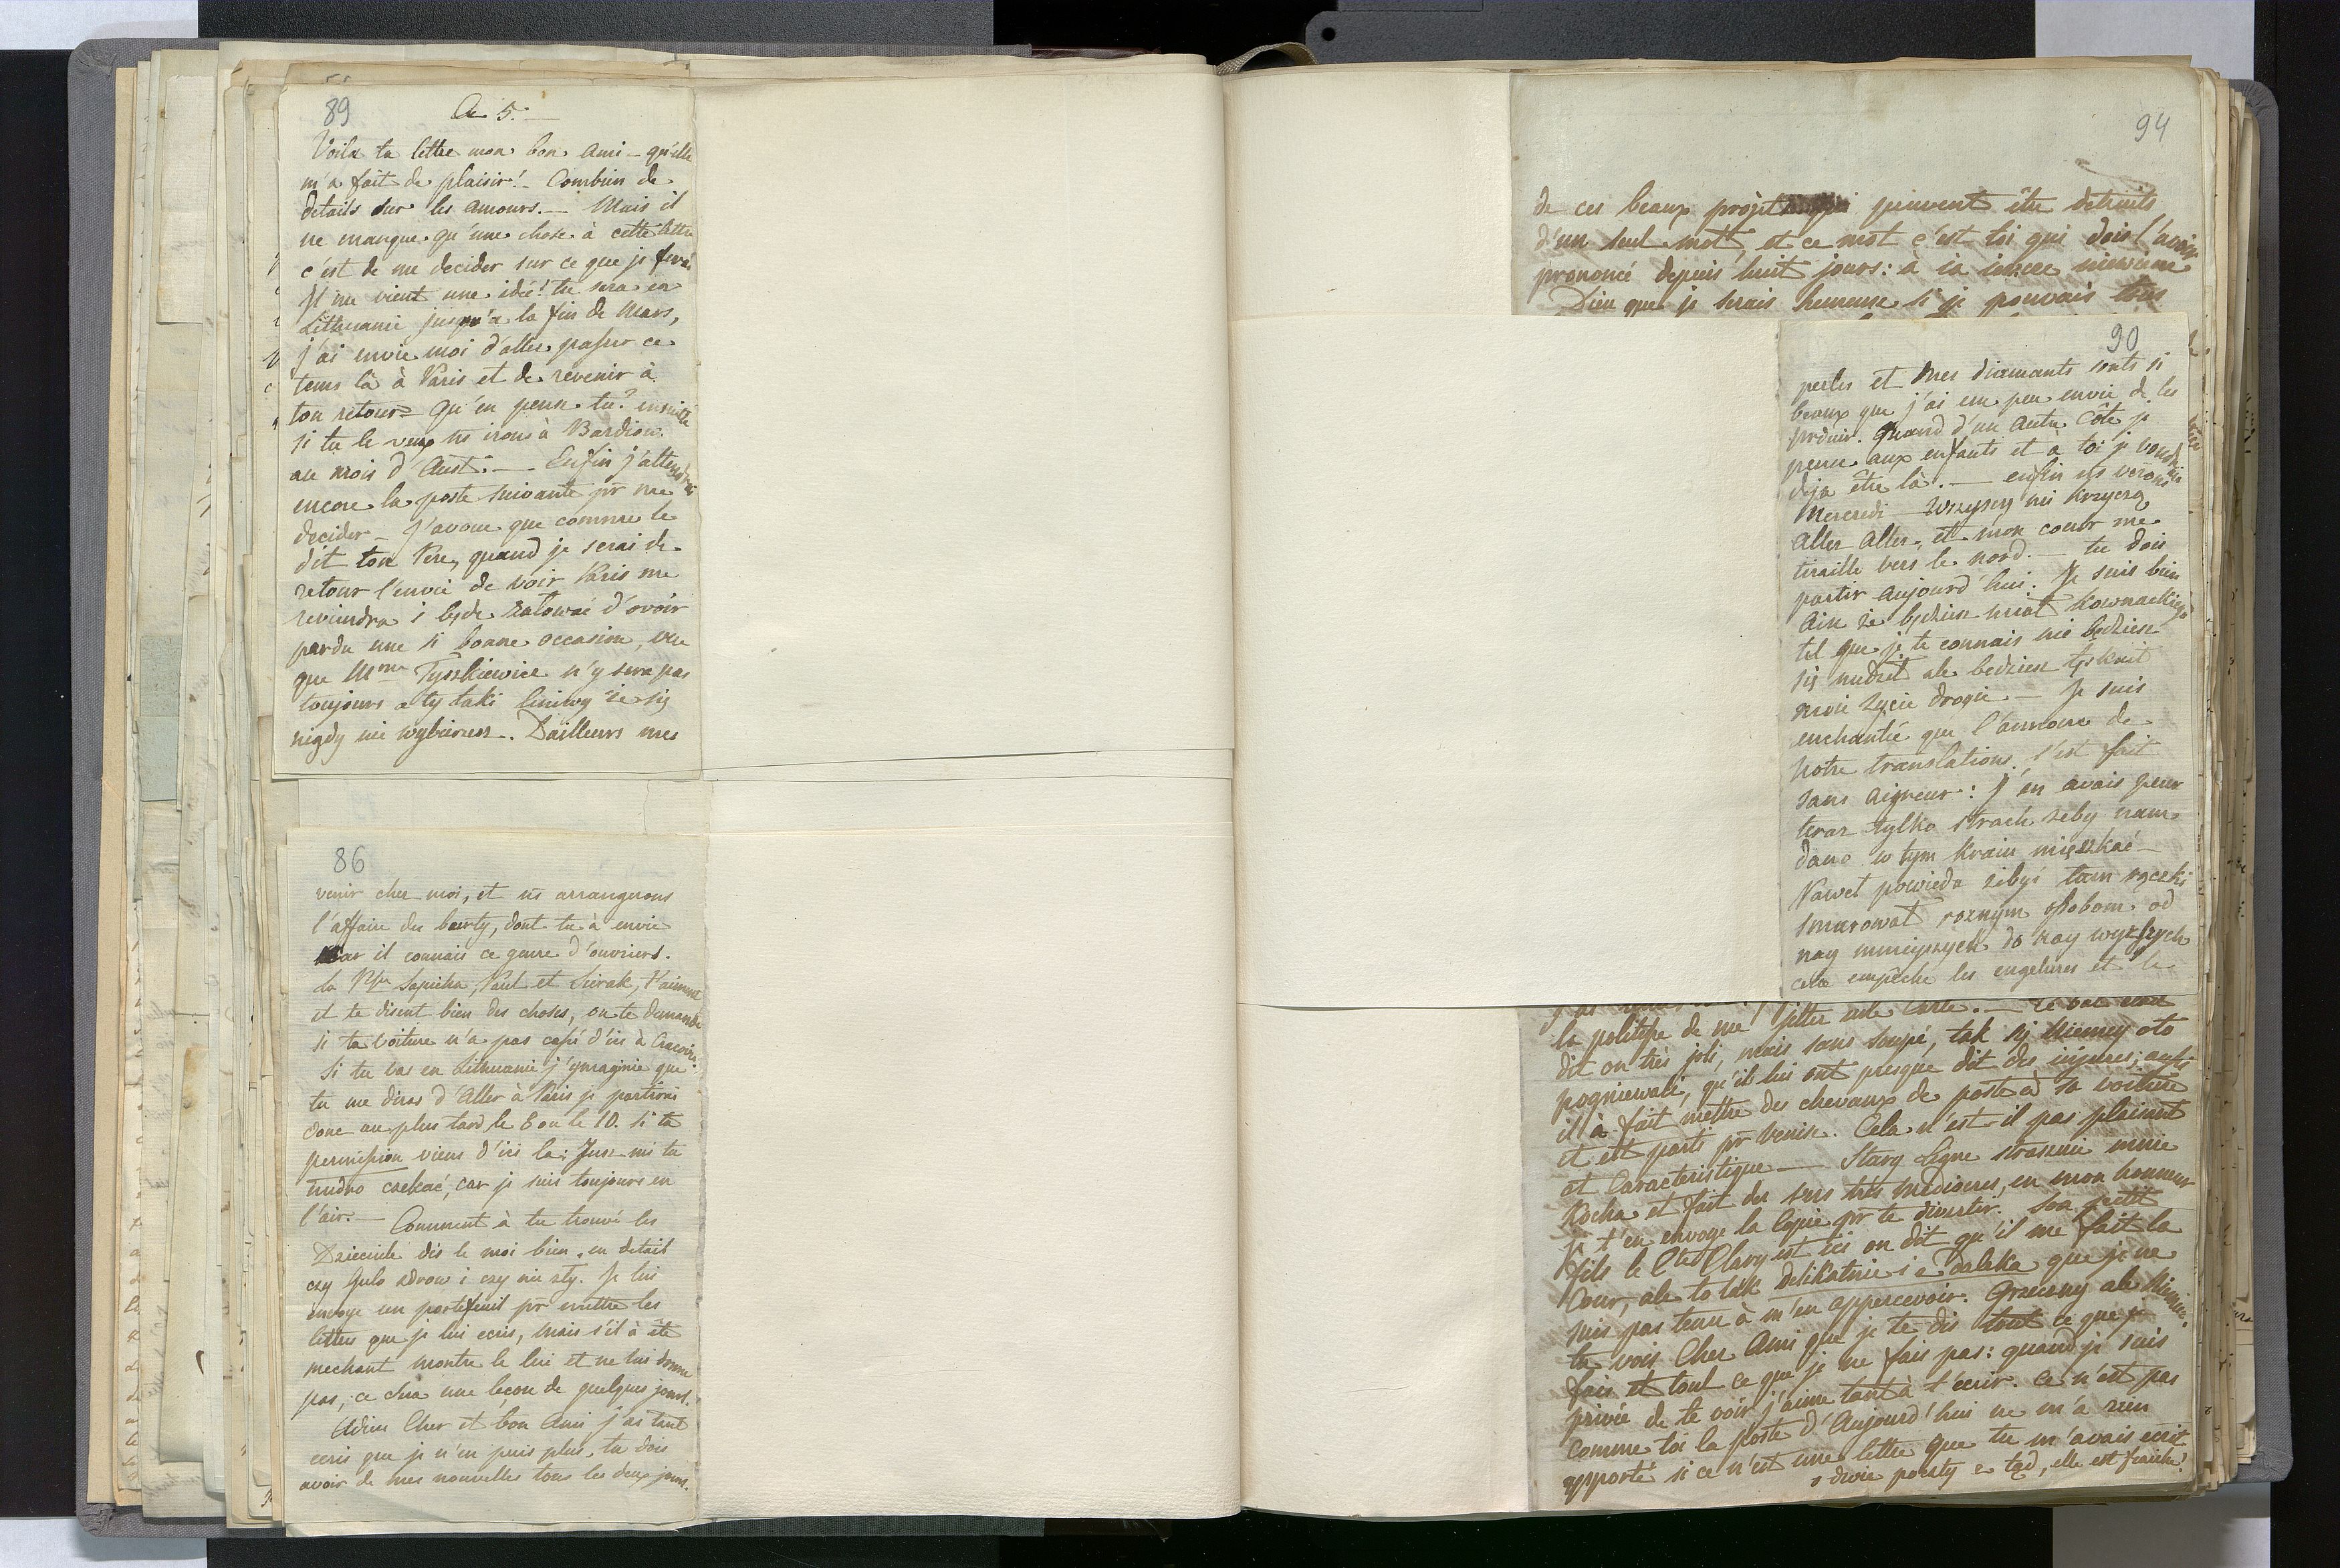 89
Ce 5.
Voila ta lettre mon bon Ami - qu'elle
m'a fait de plaisir! - Combien de
details sur les amours. - Mais il
ne manque qu'une chose à cette lettre
c'est de me decider sur ce que je ferai
Il me vient une idée! tu sera en
Litthuanie jusqu'a la fin de Mars,
j'ai envie moi d'aller passer ce
tems là à Paris et de revenir à
ton retour - Qu'en pense tu? ensuite
si tu le veux ns irons à Bardiow
au mois d'Aust. - Enfin j'attendrai
encore la poste suivante pr me
decider - J'avoue que comme le
dit ton Pere, quand je serai de
retour l'envie de voir Paris me
reviendra i będe żałować d'avoir
perdu une si bonne occasion, vu
que Mme Tyszkiewicz n'y sera pas
toujours a ty taki leniwy że się
nigdy nie wybierzesz. D'ailleurs mes
86
venir chez moi, et ns arrangerons
l'affaire des bourty, dont tu à envie
car il connais ce genre d'ouvriers.
La Psse Sapieha, Paul et Sierak, t'aiment
et te disent bien des choses, on te demande
si ta voiture n'a pas cassé d'ici à Cracovie
Si tu vas en Lithuanie j'ymagine que
tu me diras d'Aller à Paris je partirai
donc au plus tard le 8 ou le 10. si ta
permission viens d'ici la: Jusz mi tu
nudno czekać, car je suis toujours en
l'air. - Comment à tu trouvé les
Dziecinle dis le moi bien en detail
czy Gulo zdrow i czy nie zły. Je lui
envoye un portefeuil pr mettre les
lettres que je lui ecris, mais s'il à été
mechant montre le lui et ne lui donne
pas, ce sera une leçon de quelques jours.
Adieu Cher et bon Ami j'ai tant
ecris que je n'en puis plus, tu dois
avoir de mes nouvelles tous les deux jours.
94
de ces beaux projets qui peuvent être detruits
d'un seul mot, et ce mot c'est toi qui dois l'avoir
prononcé depuis huit jours: à ia ieszcze niewiem
Dieu que je serais heureuse si je pouvais tous
90
perles et mes diamants sonts si
beaux que j'ai un peu envie de les
produir. Quand d'un autre Côté je
pense aux enfants et a toi je voudrais
deja être là. - enfin ns verons
Mercredi - Wszyscy mi krzyczą
Aller Aller, et mon coeur me
tiraille vers le nord. - tu dois
partir aujourd'hui. Je suis bien
Aise że będziesz miał Kownackiego
tel que je te connais nie będziesz
się nudził ale bedziesz tęsknił
moie życie drogie - Je suis
enchantée que l'annonce de
notre translations s'est fait
sans aigreur: J'en avais peur
teraz tylko strach żeby nam
dano w tym kraiu mięszkać -
Nawet powieda żebyś tam rączki
smarował roznym osobom od
nay mnieyszych do nay wyższych
cela empêche les engelures et le
la politesse de me jetter une Carte. - Le bal etait
dit on très joli, mais sans soupé, tak się Niemcy oto
pogniewali, qu'ils lui ont presque dit des injures; aussi
il à fait mettre des chevaux de poste à sa voiture
et est parti pr Venise. Cela n'est-il pas plaisant
et Caracteristique - Stary Ligne strasznie mnie
Kocha et fait des vers très mediocres, en mon honneur
je t'en envoye la Copie pr te divertir. Son petit
fils le Cte Clary est ici on dit qu'il me fait la
Cour, ale to tak delikatnie i z daleka que je ne
suis pas tenu à m'en appercevoir. Grzeczny ale Niemiec.
tu vois Cher Ami que je te dis tout ce que je
fais et tout ce que je ne fais pas: quand je suis
privée de te voir j'aime tant à t'écrir. ce n'est pas
comme toi la poste d'Aujourd'hui ne m'a rien
apporté si ce n'est une lettre que tu m'avais ecrit
z tąd, elle est fraiche!